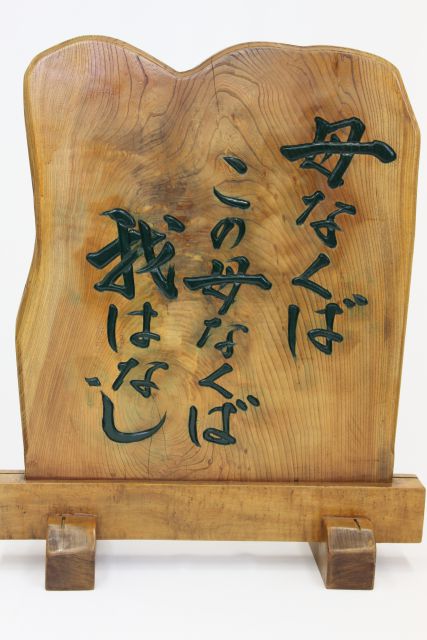 母なくば
この母なくば
我はなし